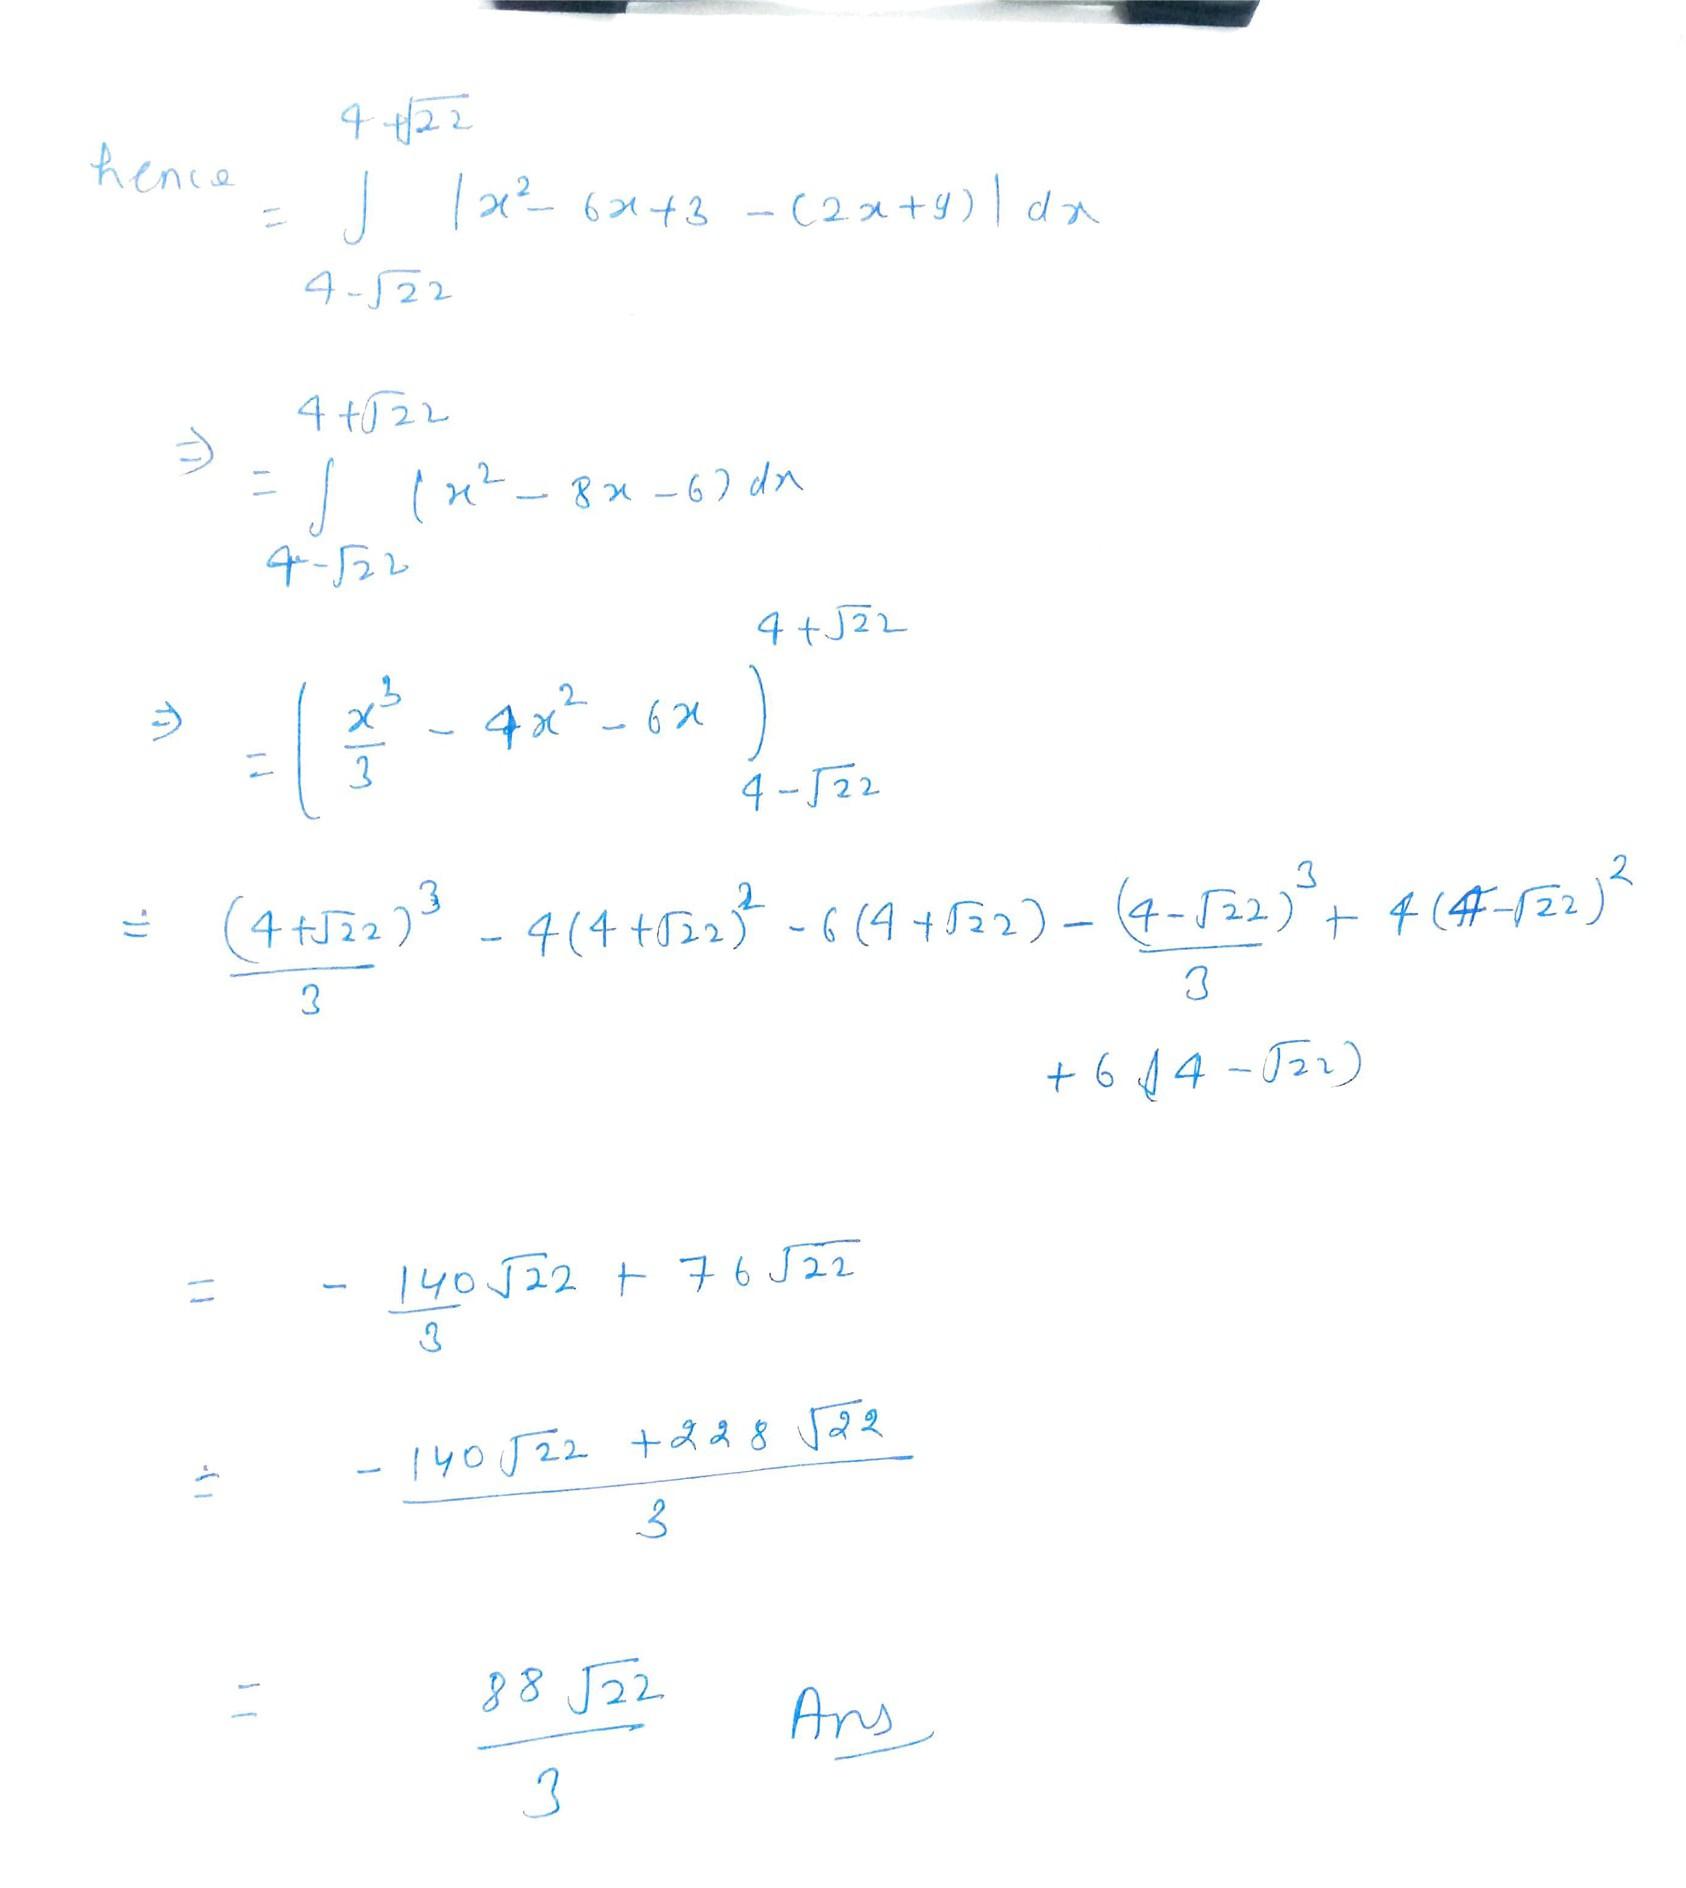 hence = ∫_{4-√22}^{4+√22} |x² - 6x + 3 - (2x + 9)| dx
⇒ = ∫_{4-√22}^{4+√22} (x² - 8x - 6) dx
⇒ = (x³/3 - 4x² - 6x)_{4-√22}^{4+√22}
= (4+√22)³/3 - 4(4+√22)² - 6(4+√22) - (4-√22)³/3 + 4(4-√22)²
+ 6(4-√22)
= - 140√22/3 + 76√22
= (-140√22 + 228√22)/3
= 88√22/3 Ans